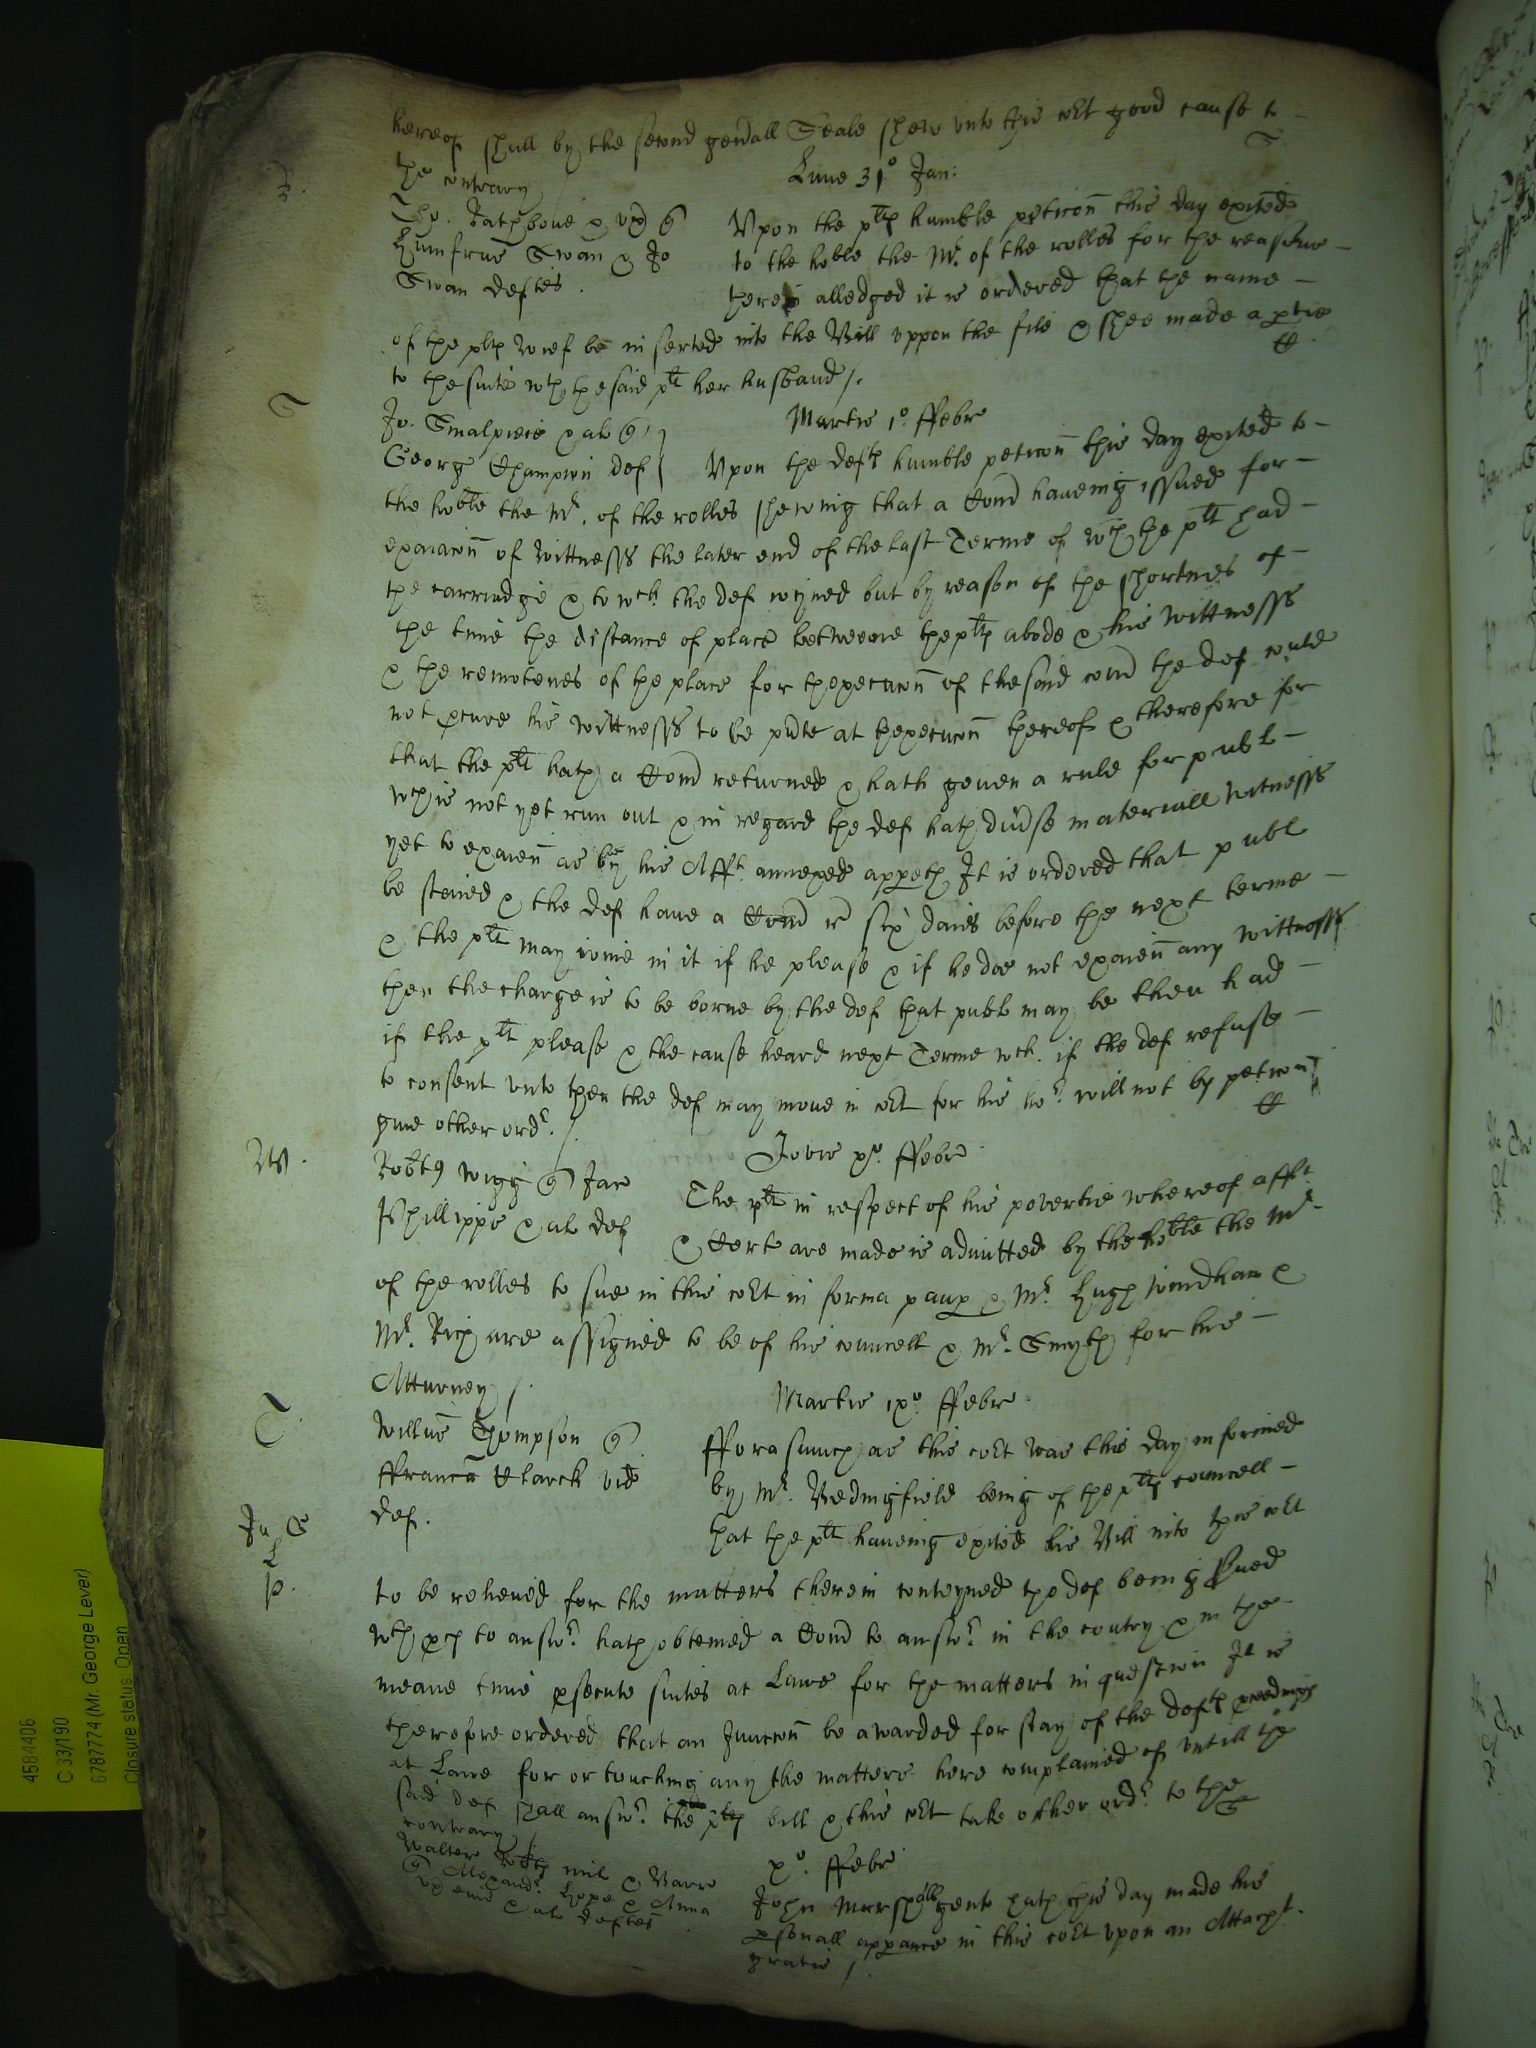 hereof shall by the second gen'all Seale shew vnto this co't good cause to
the contrary
Lune 31o Jan:
Tho. Rathbone & vx q
Humfrus Swan & Jo
Swan deftes.
Vpon the plts humble peticon this day exited
to the ho:ble the Mr. of the rolles for the reasons
therein alledged it is ordered that the name
of the plts wief be inserted into the Bill vppon the file & shee made a ptie
to the suite wth the said plt her husband /.
T
Jo. Smalpeice & al q
George Champion def
Martis 1o. ffebr
Vpon the defts humble peticon this day exited to
the hoble the Mr. of the rolles shewing that a Com haueing issued for
exaiacon of wittnesss the later end of the last Terme of wch the plt had
the carriadge & to wch. the def ioyned but by reason of the shortnes of
the time the distance of place betweene the plts abode & his wittnesss
& the remotenes of the place for thexecucon of the said com the def could
not pcure his wittnesss to be pnte at thexecucon thereof & therefore for
that the plt hath a Com returned & hath geuen a rule for publ
wch is not yet run out & in regard the def hath diu'se materiall witnesss
yet to exaien as by his Afft. annexed appeth It is ordered that publ
be staied & the def haue a Com r six daies before the next terme
& the plt may ioine in it if he please & if he doe not exaien any wittnesss
then the charge is to be borne by the def that publ may be then had
if the plt please & the cause heard next Terme wch. if the def refuse
to consent vnto then the def may moue in co't for his hor. will not by peticon
giue other ordr. /.
W.
Robts Wigg q Jan
Phillipps & al def
Jovis xo. ffebr
The plt in respect of his povertie whereof afft.
& Cert are made is admitted by the hoble the Mr.
of the rolles to sue in this co't in forma paup & Mr. Hugh Windham &
Mr. Rich are assigned to be of his councell & Mr. Smyth for his
Atturney /.
T.
Willus Thompson q
ffranca Clarck vid
def.
Martis ixo. ffebr
fforasmuch as this co't was this day informed
by Mr. Bedingfield being of the plts councell
that the plt haueing exited his Bill into this co't
to be releiued for the matters therein conteyned the def being serued
wth pch to answr. hath obteined a Com to answr. in the coutry & in the
meane time psecute suites at Lawe for the matters in question It is
therefore ordered that an Juncon be awarded for stay of the defts pceedings
at Lawe for or touching any the matters here complained of vntill the
said def shall answr. the plts bill & this co't take other ordr. to the
contrary /.
xo. ffebr
John Marshall gent hath this day made his
psonall appance in this co't vpon an Attacht.
gratis /.
4584406
C 33/190
6787774 (Mr. George Lever)
Closure status: Open